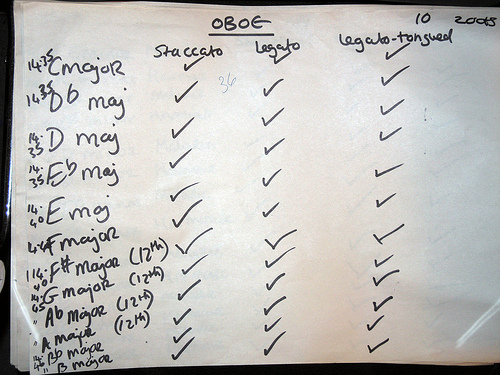 OBOE 10 2005
Staccato legato legato-tongued
14:35 C major ✓ ✓ ✓
36
14:35 Db maj ✓ ✓ ✓
14:35 D maj ✓ ✓ ✓
14:35 Eb maj ✓ ✓ ✓
14:40 E maj ✓ ✓ ✓
F major ✓ ✓ ✓
14:40 F# major (12th) ✓ ✓ ✓
14:45 G major (12th) ✓ ✓ ✓
" Ab major (12th) ✓ ✓ ✓
" A major (12th) ✓ ✓ ✓
Bb major ✓ ✓ ✓
" B major ✓ ✓ ✓